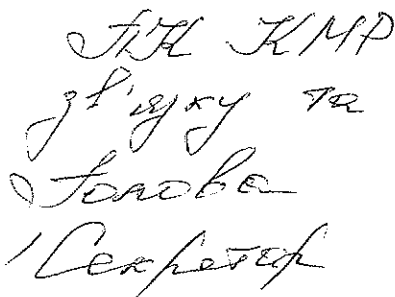 ПК КМР
зв'язку та
Голова
Секретар